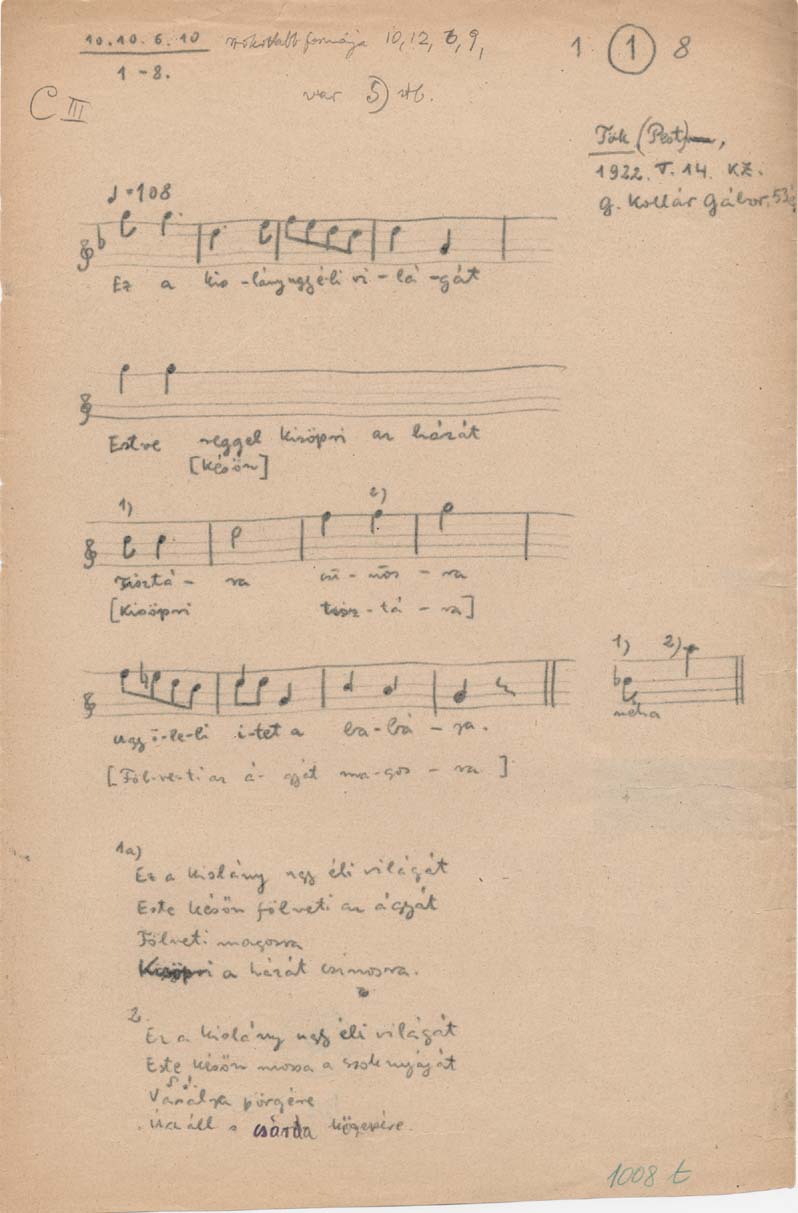 10.10.6.10 szokottabb formája 10, 12, 6, 9,
1 ① 8
1-8.
var 5) stb.
C III
Tök (Pest),
1922. V. 14. KZ.
G. Kollár Gábor. 53é
♩=108
Ez a kis-lány ugy é-li vi-lá-gát
Estve reggel kisöpri az házát
[késön]
1) 2)
Tisztá-ra csi-nos-ra
[Kisöpri tisz-tá-ra]
1) 2)
ugy ö-le-li i-tet a ba-bá-ja.
néha
[Föl-ve-ti az á-gyát ma-gos-ra]
1a)
Ez a kislány ugy éli világát
Este késön fölveti az ágyát
Fölveti magosra
Kisöpri a házát csinosra.
2.
Ez a kislány ugy éli világát
Este késön mossa a szoknyáját
pörgére
áll a csárda közepére.
1008 t